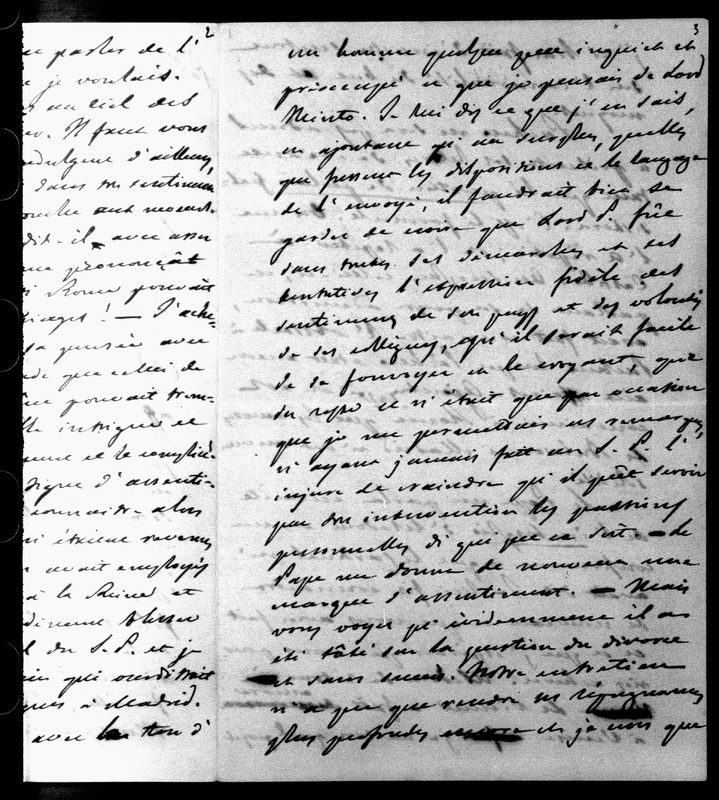 2
ue parler de l'
e je voulais.
au ciel des
Il faut vous
indulgence d'ailleurs
dans son sentiment
dit-il, avec assu
me prononçât
si Rome pouvait
riages! — J'ache-
sa pensée avec
de que celui de
ne pouvait trom-
lle intrigue et
reine et le complice
digne d'assenti-
alors
i étaient revenus
avait employés
à la Reine et
blesser
l du S. P. et je
qui ourdissait
ques à Madrid.
avec un ton d'
3
un homme quelque peu inquiet et
préoccupé ce que je pensais de Lord
Minto. Je lui dis ce que j'en sais,
en ajoutant qu'au surplus, quelles
que fussent les dispositions et le langage
de l'envoyé, il faudrait bien se
garder de croire que Lord P. fût
dans toutes ses démarches et ses
tentatives l'expression fidèle des
sentimens de son pays et des volontés
de ses collègues, qu'il serait facile
de se fourvoyer en le croyant, que
du reste ce n'était que par occasion
que je me permettais ces remarques,
n'ayant jamais fait au S. P. l'
injure de craindre qu'il pût servir
par son intervention les passions
personnelles de qui que ce soit. — Le
Pape me donne de nouveau une
marque d'assentiment. — Mais
vous voyez qu'évidemment il a
été tâté sur la question du divorce
et sans succès. Notre entretien
n'a pu que rendre ses répugnances
plus profondes et je crois que